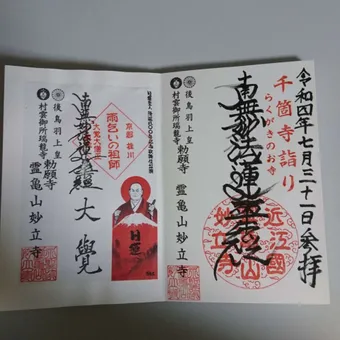 令和四年七月三十一日参拝
千箇寺詣り
らくがきのお寺
南無妙法蓮華経
近江國
妙立寺
後鳥羽上皇 勅願寺
村雲御所瑞龍寺
霊亀山妙立寺
京都 桂川
雨乞いの祖師
大覚大僧正
南無妙法蓮華経
大覺
日蓮
後鳥羽上皇 勅願寺
村雲御所瑞龍寺
霊亀山妙立寺